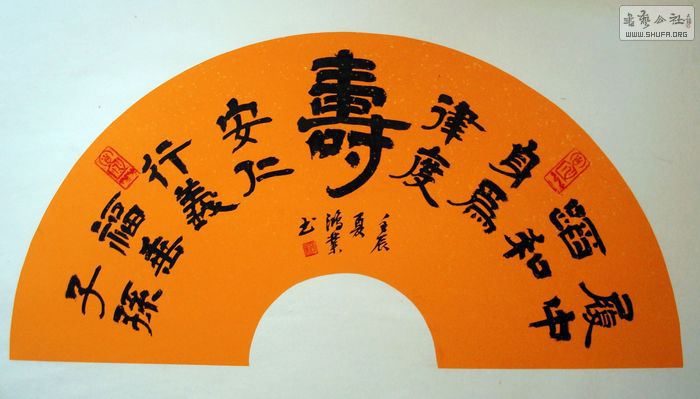 履中
蹈和
身為
律度
壽
安仁
行義
福善
子孫
壬辰
夏
鴻業
书
书藝公社
WWW.SHUFA.ORG